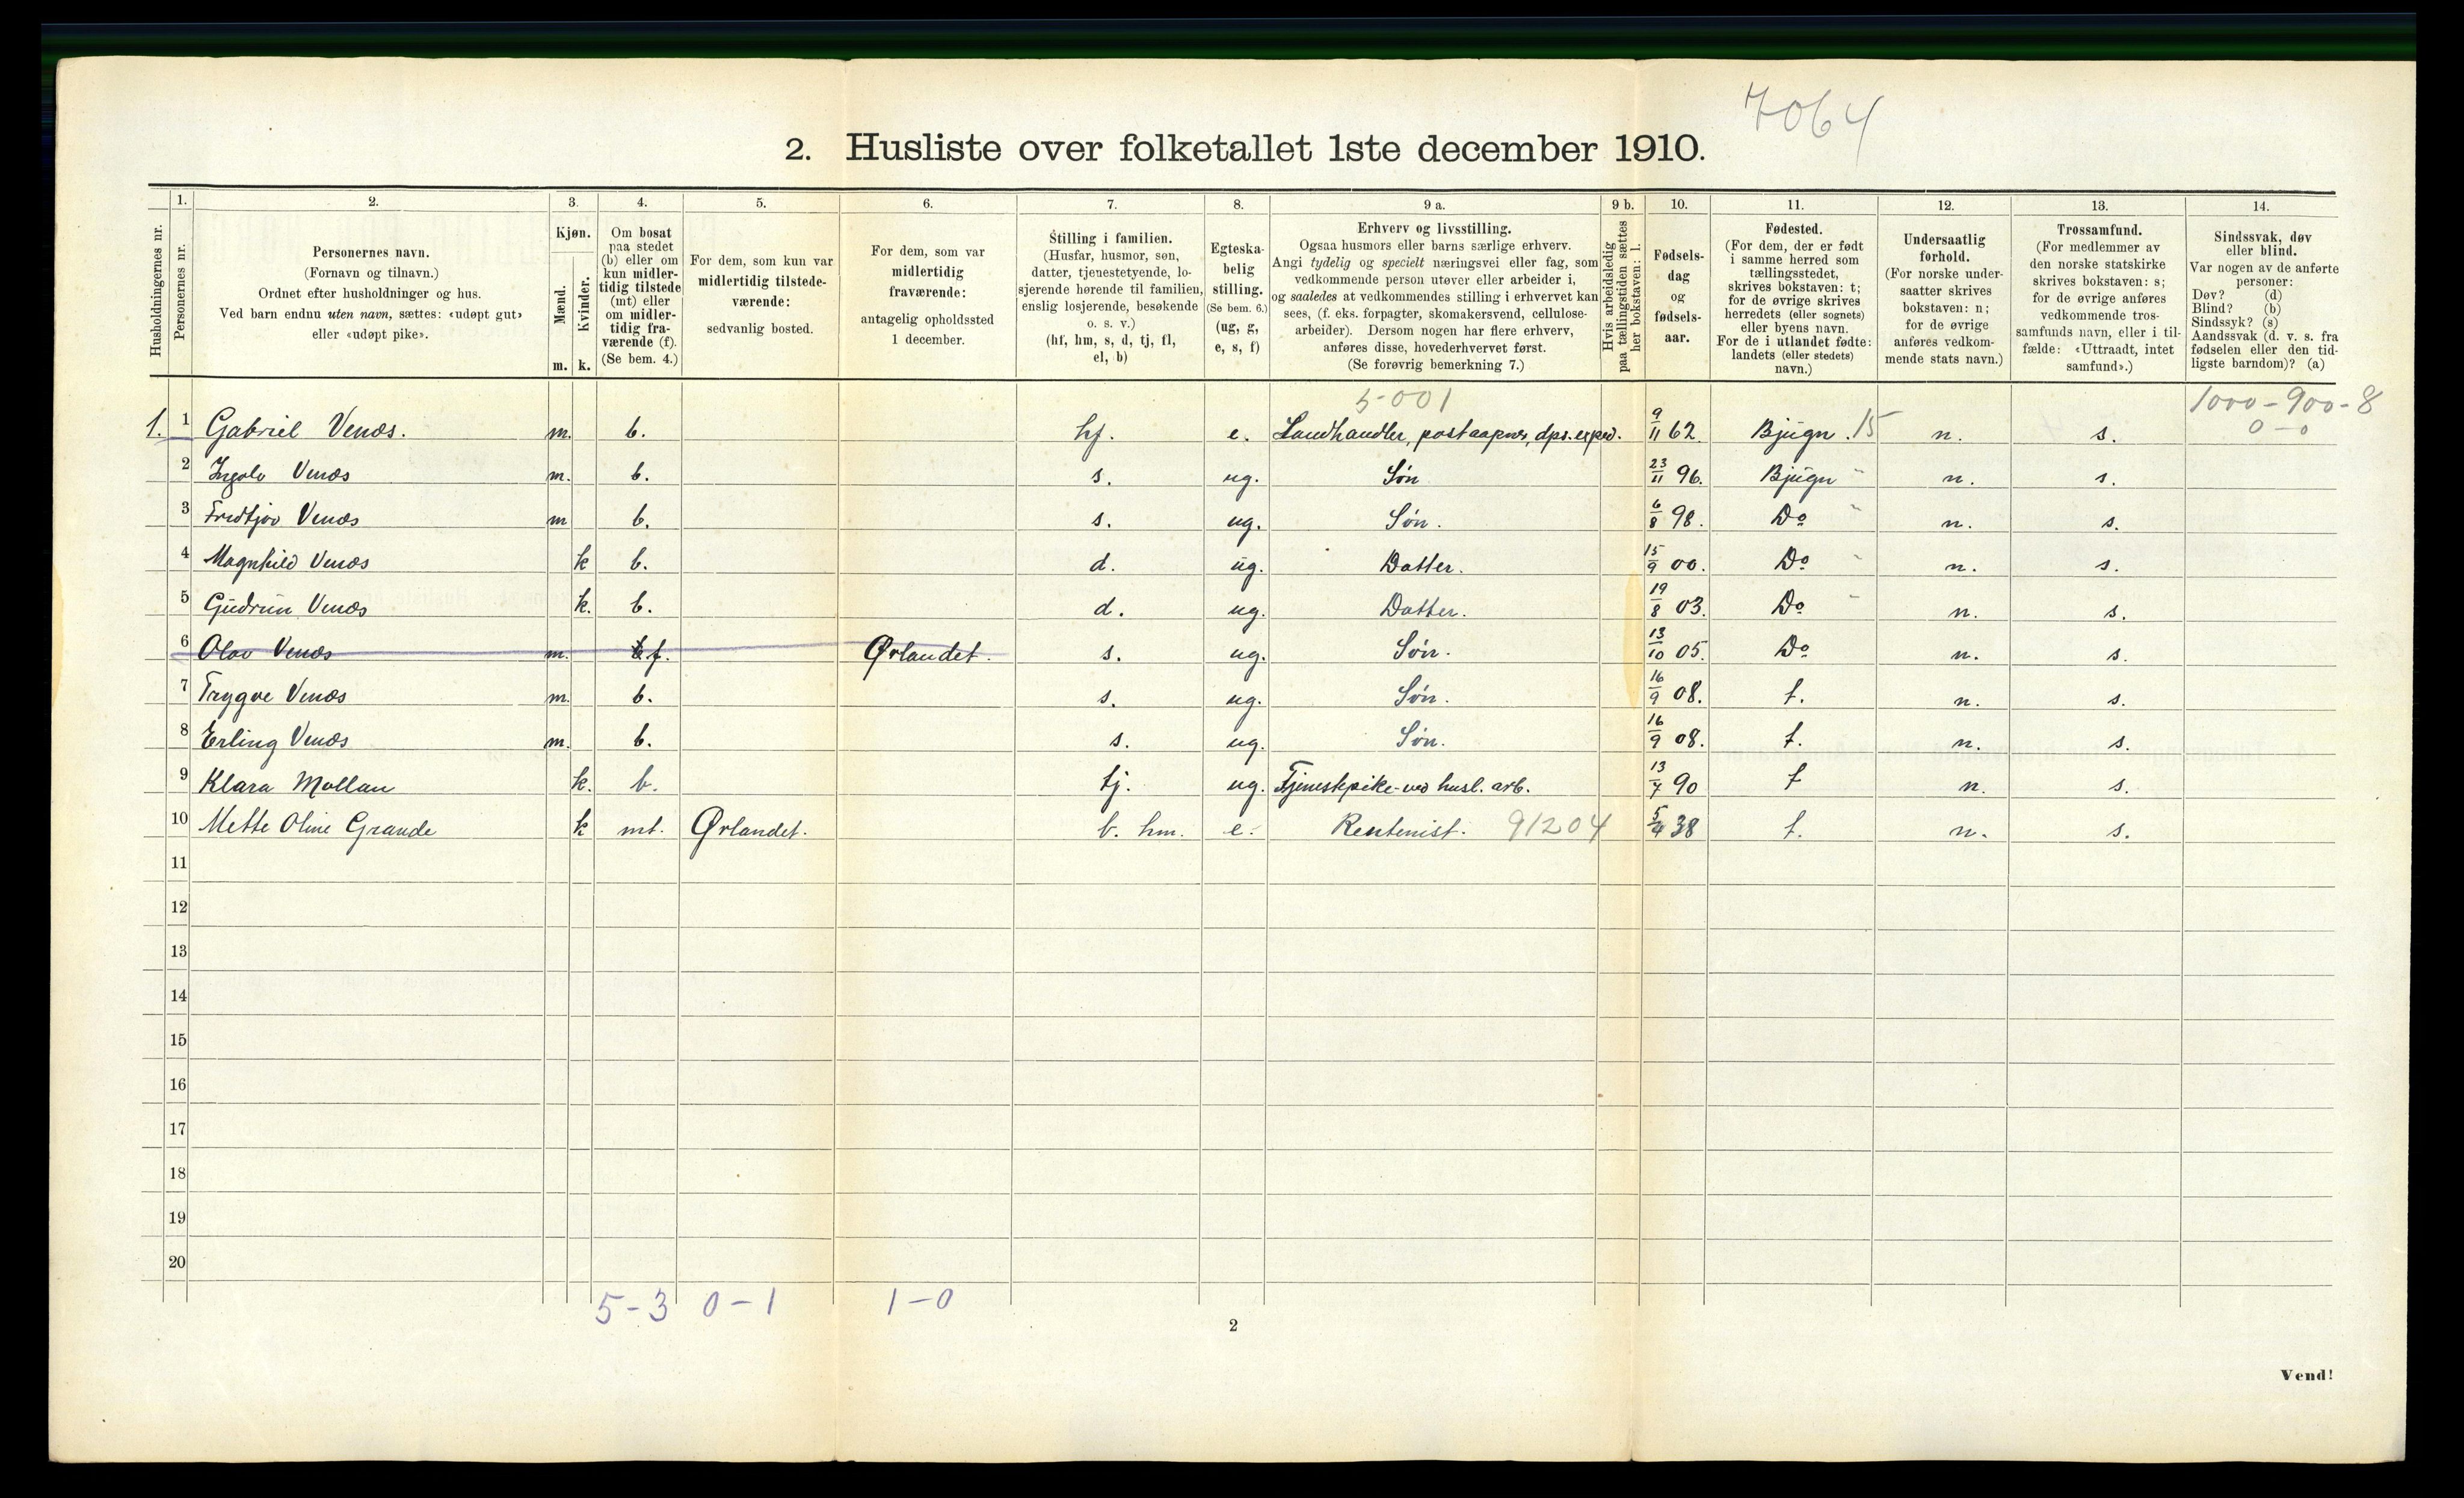 7064
2. Husliste over folketallet 1ste december 1910.
Husholdningernes nr.
1. Personernes nr.
2. Personernes navn.
(Fornavn og tilnavn.)
Ordnet efter husholdninger og hus.
Ved barn endnu uten navn, sættes: «udøpt gut»
eller «udøpt pike».
3. Kjøn.
Mænd. m.
Kvinder. k.
4. Om bosat
paa stedet
(b) eller om
kun midler-
tidig tilstede
(mt) eller
om midler-
tidig fra-
værende (f).
(Se bem. 4.)
5. For dem, som kun var
midlertidig tilstede-
værende:
sedvanlig bosted.
6. For dem, som var
midlertidig
fraværende:
antagelig opholdssted
1 december.
7. Stilling i familien.
(Husfar, husmor, søn,
datter, tjenestetyende, lo-
sjerende hørende til familien,
enslig losjerende, besøkende
o. s. v.)
(hf, hm, s, d, tj, fl,
el, b)
8. Egteska-
belig
stilling.
(Se bem. 6.)
(ug, g,
e, s, f)
9 a. Erhverv og livsstilling.
Ogsaa husmors eller barns særlige erhverv.
Angi tydelig og specielt næringsvei eller fag, som
vedkommende person utøver eller arbeider i,
og saaledes at vedkommendes stilling i erhvervet kan
sees, (f. eks. forpagter, skomakersvend, cellulose-
arbeider). Dersom nogen har flere erhverv,
anføres disse, hovederhvervet først.
(Se forøvrig bemerkning 7.)
9 b. Hvis arbeidsledig
paa tællingstiden sættes
her bokstaven: l.
10. Fødsels-
dag
og
fødsels-
aar.
11. Fødested.
(For dem, der er født
i samme herred som
tællingsstedet,
skrives bokstaven: t;
for de øvrige skrives
herredets (eller sognets)
eller byens navn.
For de i utlandet fødte:
landets (eller stedets)
navn.)
12. Undersaatlig
forhold.
(For norske under-
saatter skrives
bokstaven: n;
for de øvrige
anføres vedkom-
mende stats navn.)
13. Trossamfund.
(For medlemmer av
den norske statskirke
skrives bokstaven: s;
for de øvrige anføres
vedkommende tros-
samfunds navn, eller i til-
fælde: «Uttraadt, intet
samfund».)
14. Sindssvak, døv
eller blind.
Var nogen av de anførte
personer:
Døv? (d)
Blind? (b)
Sindssyk? (s)
Aandssvak (d. v. s. fra
fødselen eller den tid-
ligste barndom)? (a)
5-001 1000-900-8
1. 1 Gabriel Venæs. m. b. hf. e. Landhandler, postaapner, dps. exped. 9/11 62. Bjugn. 15 n. s. 0-0
2 Ingolv Venæs m. b. s. ug. Søn 23/11 96. Bjugn n. s.
3 Fredtjov Venæs m b. s. ug. Søn. 6/8 98. Do n. s.
4 Magnhild Venæs k b. d. ug. Datter. 15/9 00. Do n. s.
5 Gudrun Venæs k. b. d. ug. Datter. 19/8 03. Do n. s.
6 Olav Venæs m. f. Ørlandet. s. ug. Søn. 13/10 05. Do n. s.
7 Trygve Venæs m. b. s. ug. Søn. 16/9 08. t. n. s.
8 Erling Venæs m. b. s. ug. Søn. 16/9 08. t. n. s.
9 Klara Mollan k. b. tj. ug. Tjenestpike-ved husl. arb. 13/7 90 t n. s.
10 Mette Oline Grande k mt. Ørlandet. b. hm. e. Rentenist. 91204 5/4 38 t. n. s.
11
12
13
14
15
16
17
18
19
20
5-3 0-1 1-0
2
Vend!